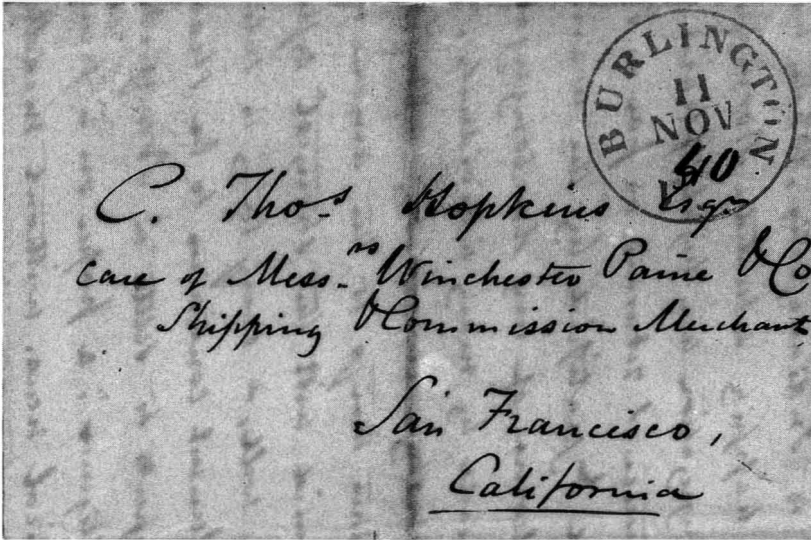 BURLINGTON
11
NOV
40
C. Thos. Hopkins Esqr
Care of Messrs. Winchester Paine & Co
Shipping & Commission Merchant
San Francisco,
California